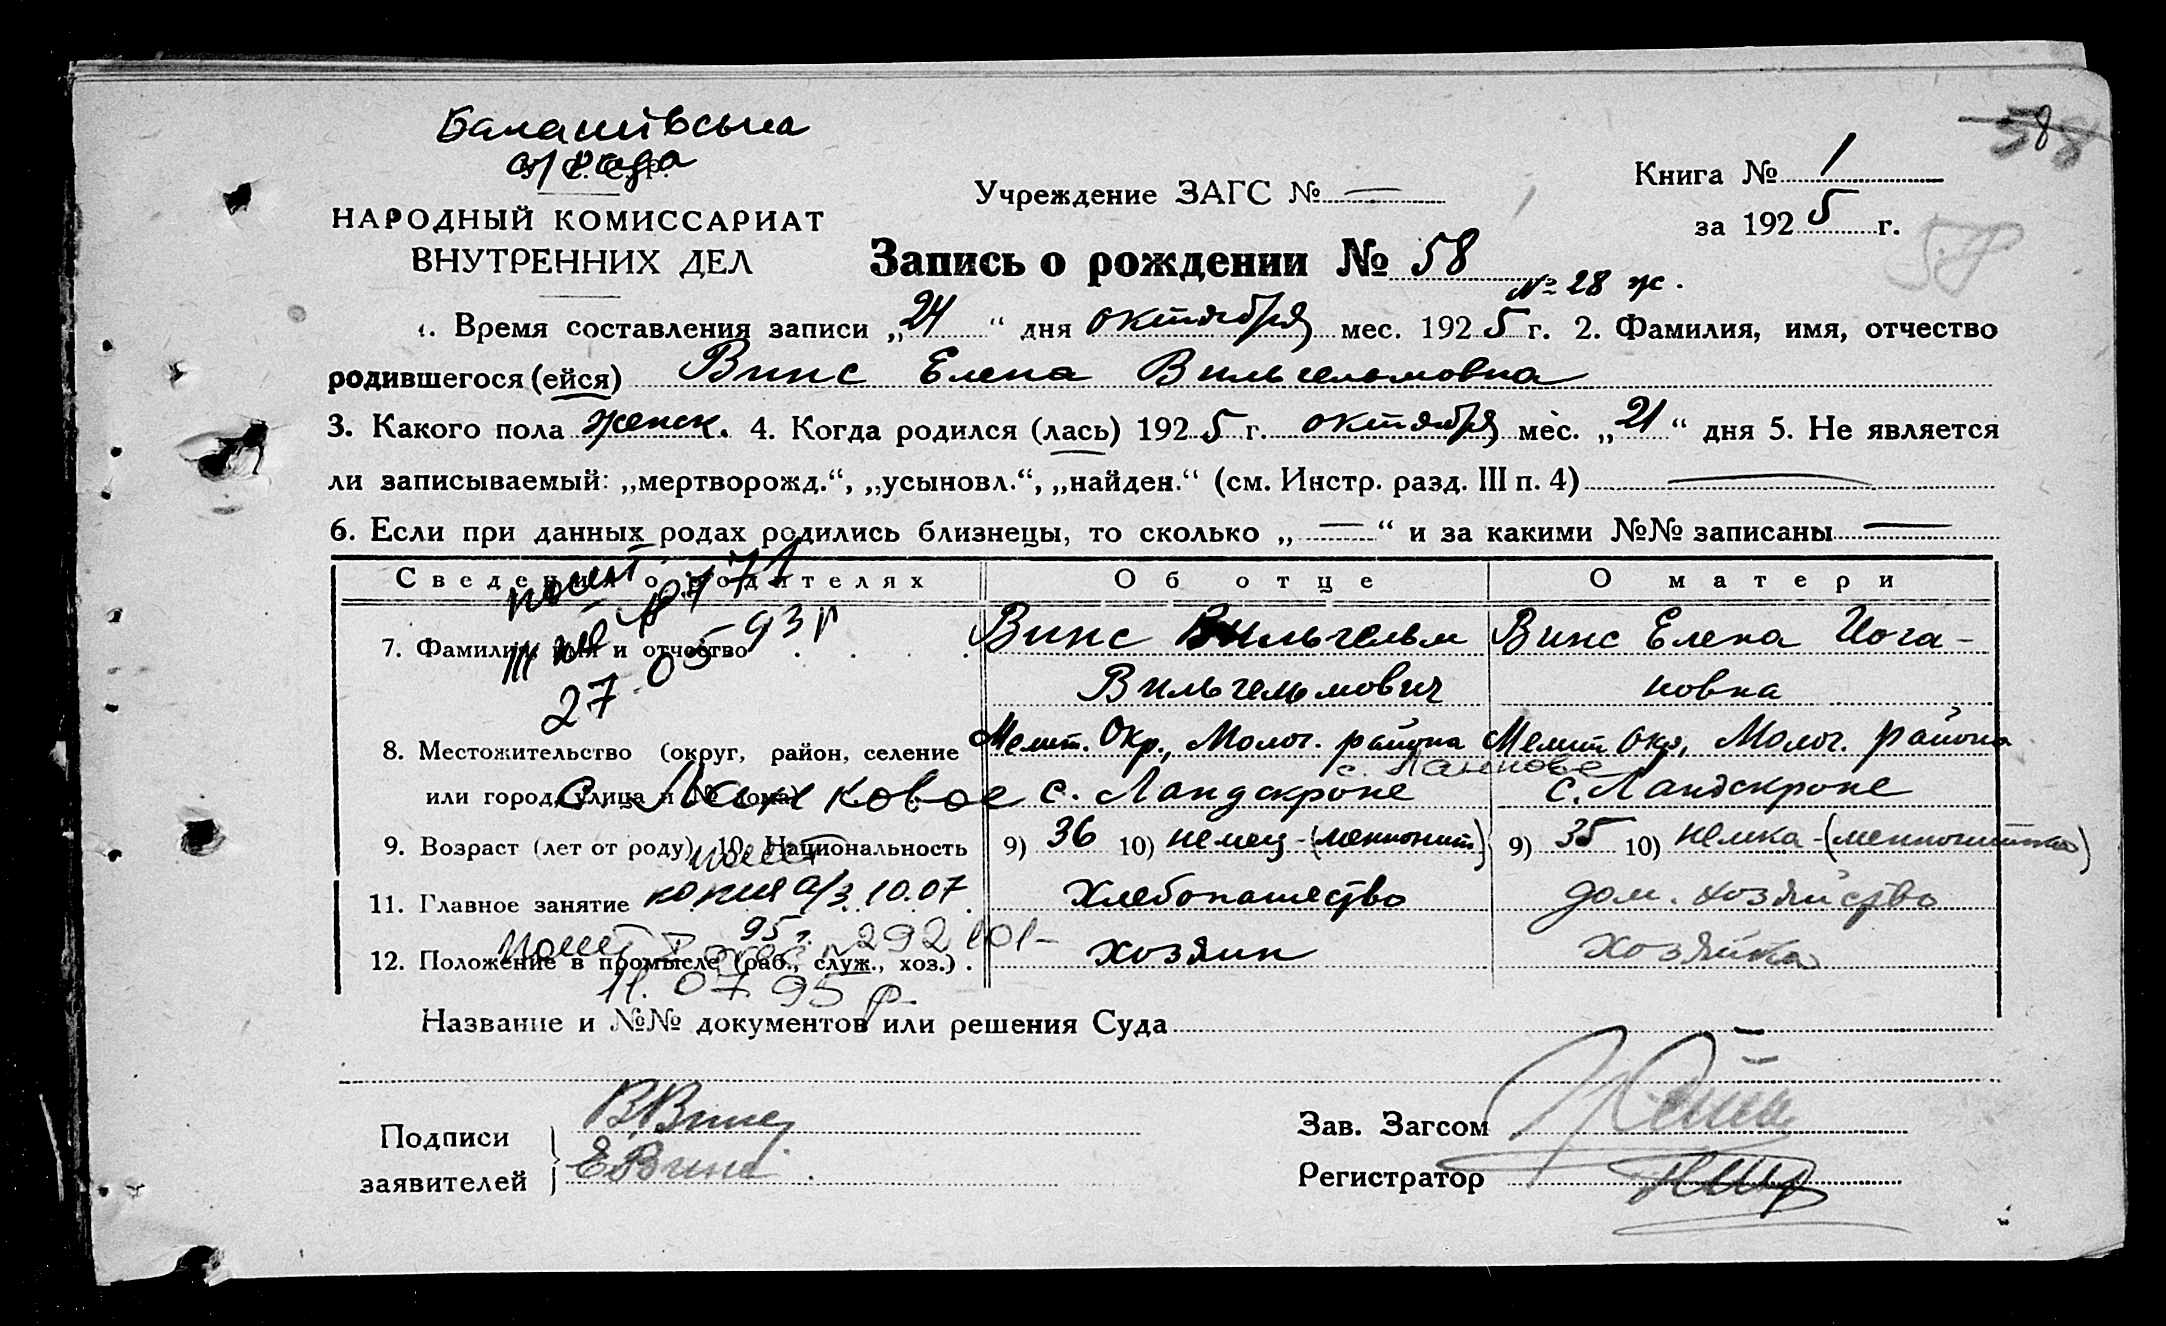 Балашівська
с/рада
58
Книга № 1
Учреждение ЗАГС № —
за 1925 г.
НАРОДНЫЙ КОМИССАРИАТ
ВНУТРЕННИХ ДЕЛ
58
Запись о рождении № 58
№ 28 ж.
1. Время составления записи „24“ дня октября мес. 1925 г. 2. Фамилия, имя, отчество
родившегося (ейся) Винс Елена Вильгельмовна
3. Какого пола женск. 4. Когда родился (лась) 1925 г. октября мес. „21“ дня 5. Не является
ли записываемый: „мертворожд.“, „усыновл.“, „найден.“ (см. Инстр. разд. III п. 4) —
6. Если при данных родах родились близнецы, то сколько „—“ и за какими №№ записаны —
Сведения о родителях Об отце О матери
7. Фамилия, имя и отчество Винс Вильгельм Винс Елена Иога-
27.05 93 р
Вильгельмович новна
8. Местожительство (округ, район, селение Мелит. Окр., Молог. района Мелит. Окр., Молог. района
или город, улица и № дома) с. Ландскроне с. Ландскроне
с. Ланковое
9. Возраст (лет от роду) 10. Национальность 9) 36 10) немец-(меннонит) 9) 35 10) немка-(меннонитка)
11. Главное занятие Хлебопашество дом. хозяйство
копия а/з 10.07
95 г.
12. Положение в промысле (раб., служ., хоз.) . хозяин хозяйка
11.07 95 р
Название и №№ документов или решения Суда
Подписи В.Винс
заявителей Е Винс
Зав. Загсом
Регистратор